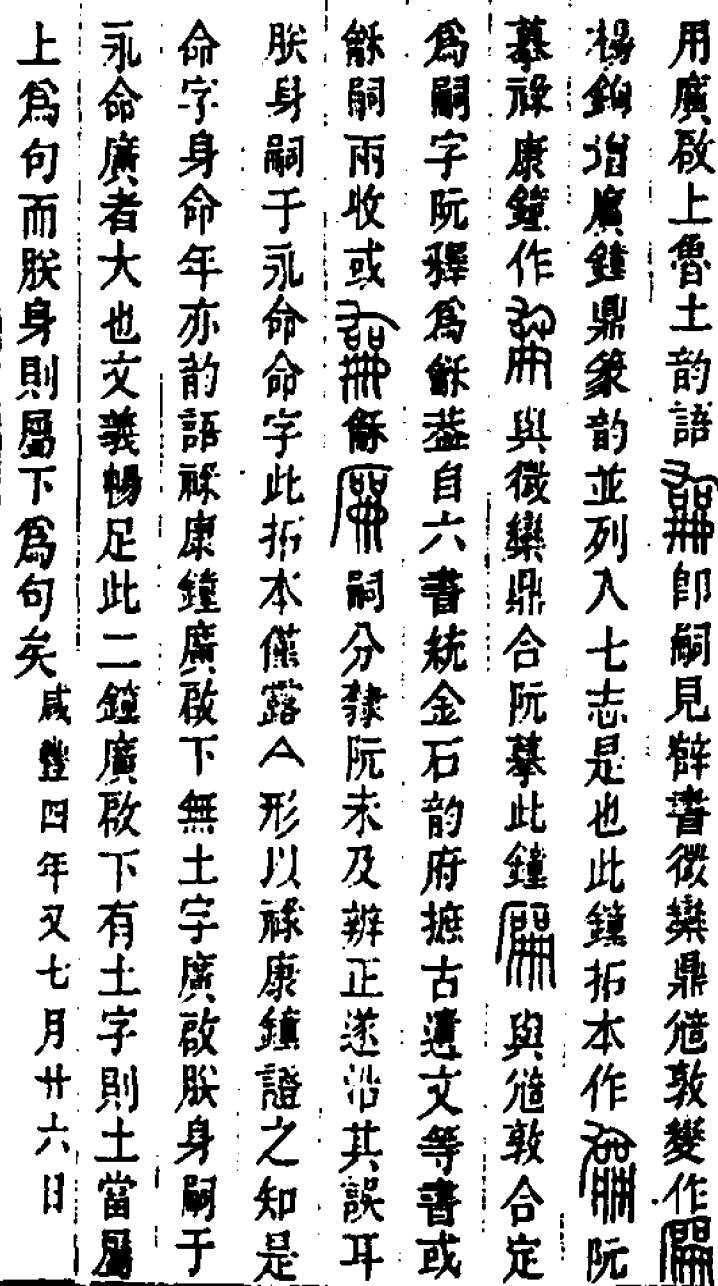 用廣啟上魯士韵語即嗣見辥書微欒鼎敦變作
楊鉤廣鐘鼎篆韵並列入七志是也此鐘拓本作阮
摹祿康鐘作與微欒鼎合阮摹此鐘與敦合定
為嗣字阮釋為龢葢自六書統金石韵府摭古遺文等書或
龢嗣兩收或龢嗣分隸阮未及辨正遂沿其誤耳
朕身嗣于永命命字此拓本僅露亼形以祿康鐘證之知是
命字身命年亦韵語祿康鐘廣啟下無土字廣啟朕身嗣于
永命廣者大也文義暢足此二鐘廣啟下有土字則土當屬
上為句而朕身則屬下為句矣咸豐四年又七月廿六日